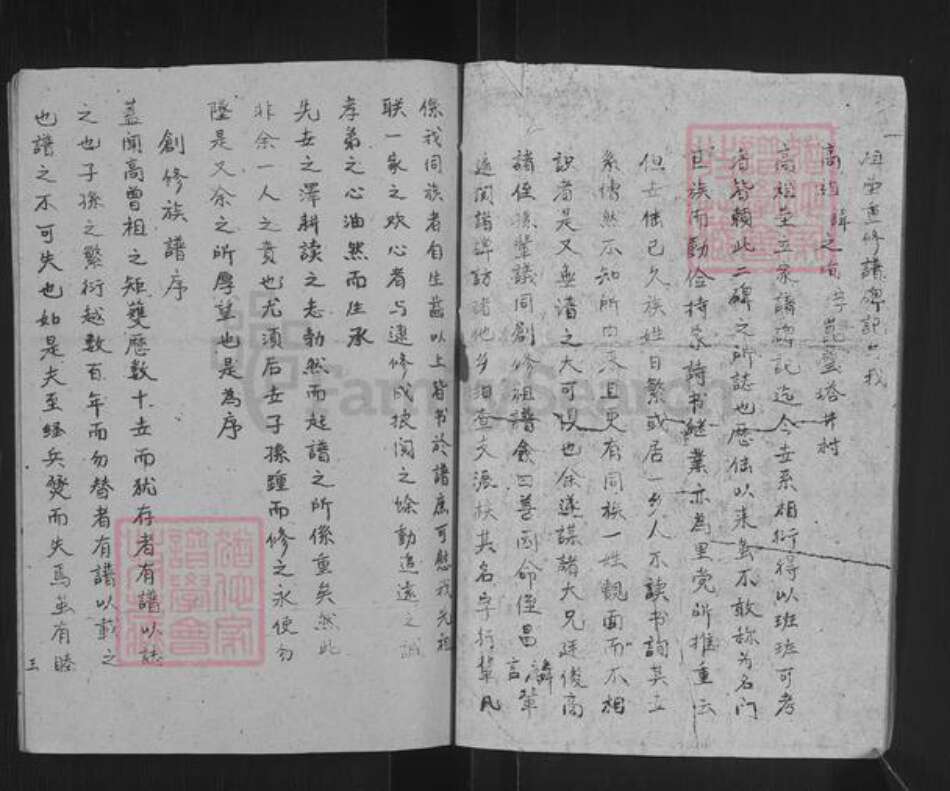 恒益重修譜碑記曰我
高祖 諱 之 字崑 塋塔井村
高祖塋立家譜碑記迄今世系相衍得以班班可考
者皆賴此二碑之所誌也歷传以来虽不敢称为名门
巨族而勤俭持家詩书継業亦為里党所推重云
但世传已久族姓日繁或居一乡人不读书詢其立
系传然不知所由来且更有同族一姓覯面而不相
识者是又无谱之大可惧也余遂谋諸大兄廷俊高
諸侄孫輩議同創修祖譜僉曰善因命侄昌 言 麟 輩
遠閱譜碑訪諸他乡相查支派核其名字行輩凡
係我同族者自生歯以上皆书於譜庶可慰我先祖
联一家之欢心者与逮修成披阅之馀動追遠之誠
孝弟之心油然而生承
先世之澤耕读之志勃然而起譜之所係重矣然此
非余一人之責也尤须后世子孫踵而修之永使勿
墜是又余之所厚望也是為序
創修族譜序
蓋闻高曾相之矩矱歷数十世而猶存者有譜以誌
之也子孫之繁衍越数百年而勿替者有譜以載之
也譜之不可失也如是夫至经兵燹而失焉虽有睦
三
FamilySearch